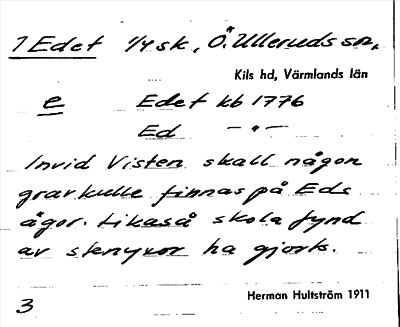 1 Edet 1/4 sk, Ö. Ulleruds sn,
Kils hd, Värmlands län
e Edet kb 1776
Ed — " —
Invid Visten skall någon
gravkulle finnas på Eds
ägor. Likaså skola fynd
av stenyxor ha gjorts.
Herman Hultström 1911
3